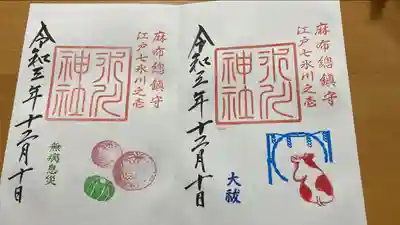 麻布總鎮守
江戸七氷川之壱
氷川
神社
大祓
令和三年十二月十日
麻布總鎮守
江戸七氷川之壱
氷川
神社
無病息災
令和三年十二月十日